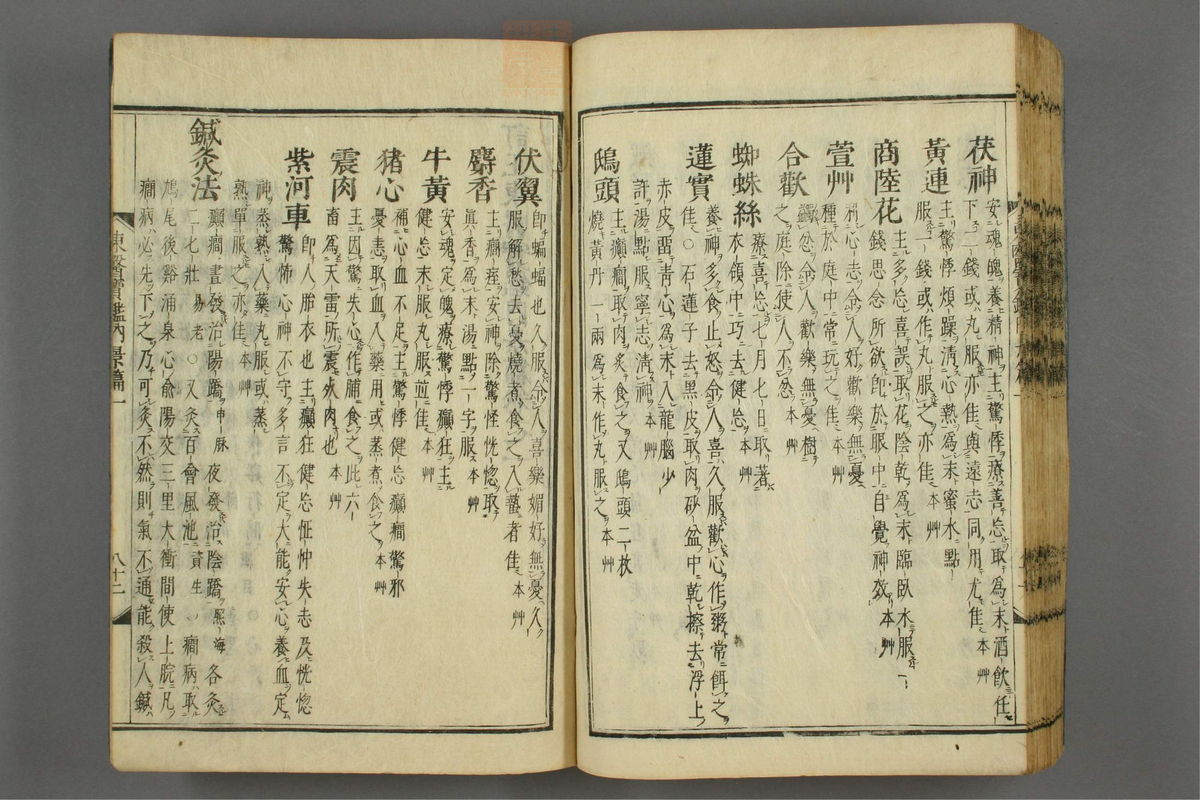 茯神 安魂魄養精神主驚悸療善忘取爲末酒飲任
下二錢或丸服亦佳與遠志同用尤佳 本艸
黃連 主驚悸煩躁淸心熱爲末蜜水點
服一錢或作丸服之亦佳 本艸
商陸花 主多忘喜誤取花陰乾爲末臨臥水服一
錢思念所欲卽於服中自覺神效 本艸
萱艸 利心志令人好歡樂無憂
種於庭中常玩之 本艸
合歡 蠲忿令人歡樂無憂樹
之庭除使人不忿 本艸
蜘蛛絲 療喜忘七月七日取著
衣領中巧去健忘 本艸
蓮實 養神多食止怒令人喜久服歡心作粥常餌之
佳○石蓮子去黑皮取肉砂盆中乾擦去浮上
赤皮留靑心爲末入龍腦少
許湯點服寧志淸神 本艸
鴟頭 主癲癇取肉炙食之又鴟頭二枚
燒黃丹一兩爲末作丸服之 本艸
伏翼 卽蝙蝠也久服令人喜樂媚好無憂久
服解愁去燒煮食之入蟄者佳 本艸
麝香 主癲痓安神除驚怪恍惚取
眞香爲末湯點一字服 本艸
牛黃 安魂定魄療驚悸癲狂主
健忘末服丸服並佳 本艸
猪心 補心血不足主驚悸健忘癲癇驚邪
憂恚取血入藥用或蒸煮食之 本艸
震肉 主因驚失心作脯食之此六
畜爲天雷所震死肉也 本艸
紫河車 卽人胎衣也主癲狂健忘怔忡失志及恍惚
驚怖心神不守多言不定大能安心養血定
神蒸熟入藥丸服或蒸
熟單服之亦佳 本艸
鍼灸法 癲癇晝發治陽蹻 申脉 夜發治陰蹻 照海 各灸
二七壯 易老 ○又灸百會風池 資生 ○癇病取
鳩尾後谿涌泉心兪陽交三里大衝間使上脘凡
癇病必先下之乃可灸不然則氣不通能殺人鍼
東醫寶鑑內景篇一
八十二